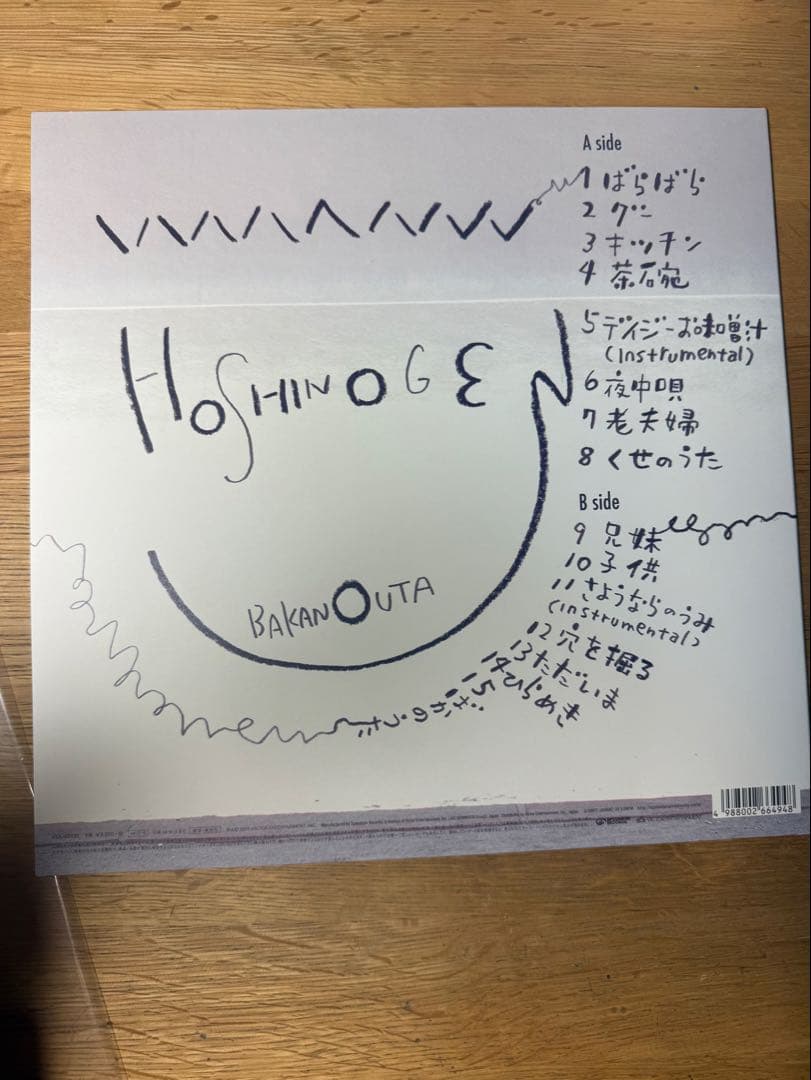 A side
1 ばらばら
2 グー
3 キッチン
4 茶碗
5 デイジーお味噌汁
(Instrumental)
6 夜中唄
7 老夫婦
8 くせのうた
B side
9 兄妹
10 子供
11 さようならのうみ
(instrumental)
12 穴を掘る
13 ただいま
14 ひらめき
15 ばかのうた
HOSHINO GEN
BAKANOUTA
4 988002 664948